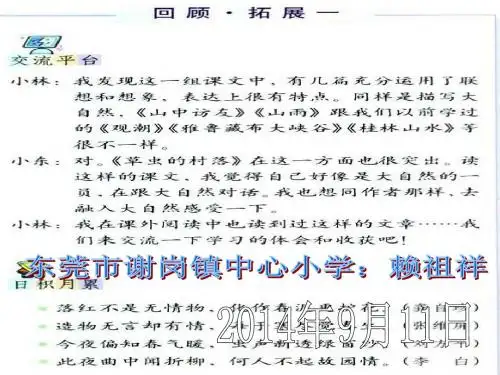 回顾·拓展一
交流平台
小林：我发现这一组课文中，有几篇充分运用了联
想和想象，表达上很有特点。同样是描写大
自然，《山中访友》《山雨》跟我们以前学过
的《观潮》《雅鲁藏布大峡谷》《桂林山水》等
很不一样。
小东：对。《草虫的村落》在这一方面也很突出。读
这样的课文，我觉得自己好像是大自然的一
员，在跟大自然对话。我也想同作者那样，去
融入大自然感受一下。
小林：我在课外阅读中也读到过这样的文章……我
们来交流一下学习的体会和收获吧！
东莞市谢岗镇中心小学：赖祖祥
日积月累
2014年9月11日
落红不是无情物，
造物无言却有情，
今夜偏知春气暖，虫声新透绿
此夜曲中闻折柳，何人不起故园情。（李 白）